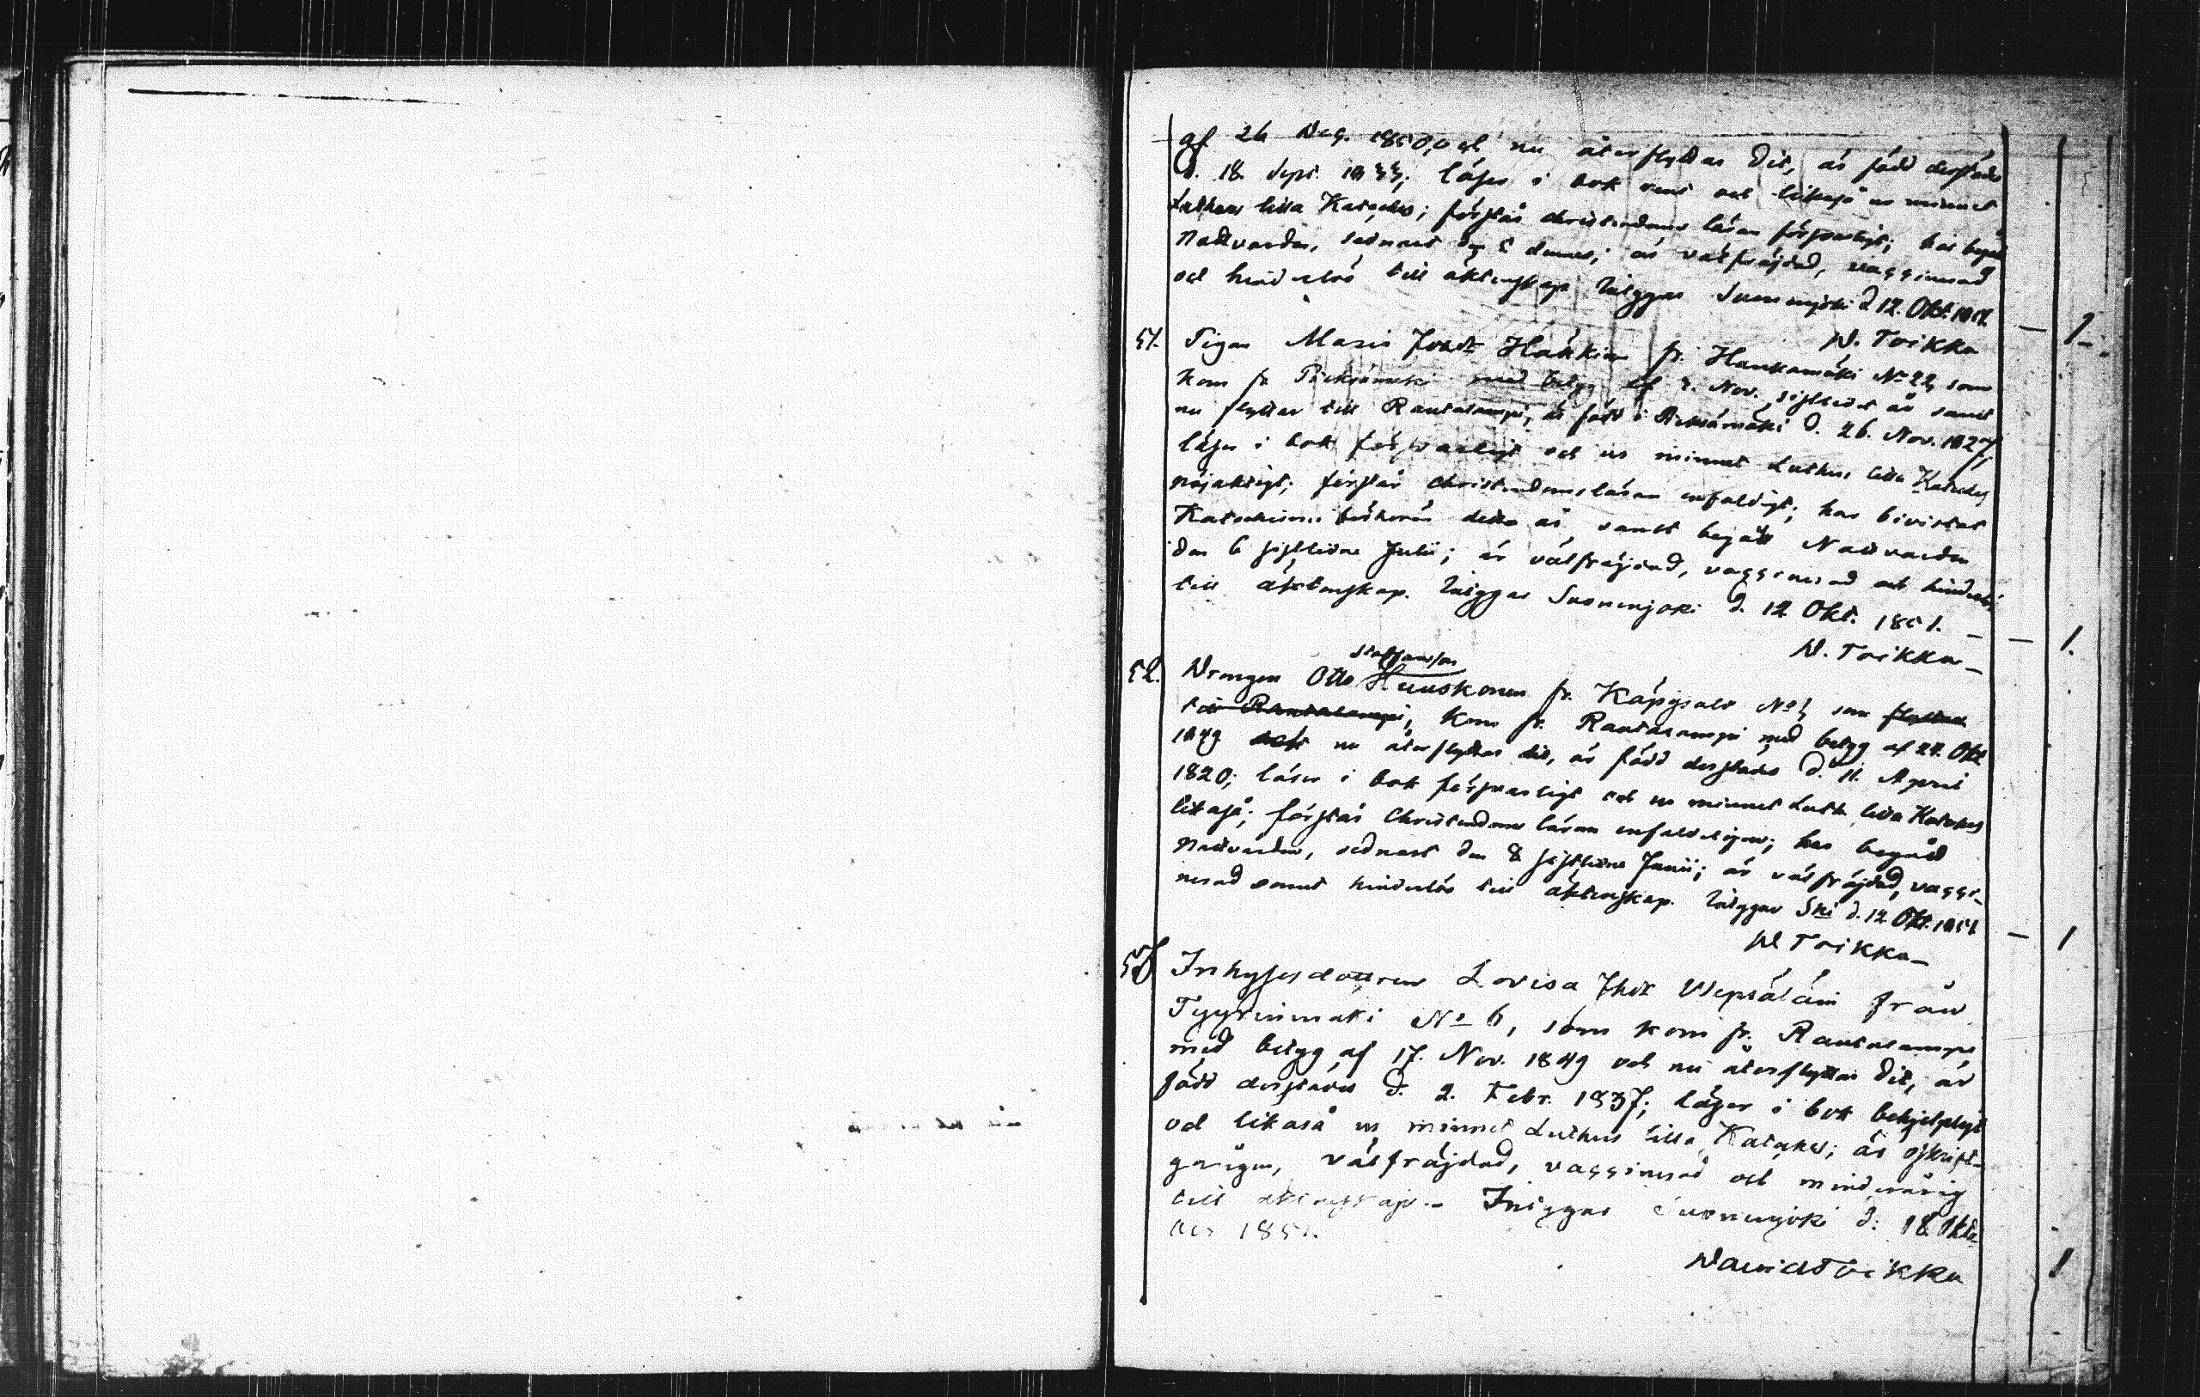 af 26 Dec. 1850, och nu återflyttar dit, är född derstädes
d. 18 Sept. 1833; läser i bok rent och likaså ur minnet
Luthers lilla Kateches; förstår christendoms läran försvarligt; har begått
Nattvarden, sednast den 5 dennes; är välfräjdad, vaccinerad
och hinderlös till äktenskap. Intygar Suonenjoki d. 12. Okt. 1851.
D. Toikka — 1.
51. Pigan Maria Jonsdr Häkkin fr. Hankamäki No 22, som
kom fr. Pieksämäki med betyg af 2. Nov. sistledet år samt
nu flyttar till Rautalampi, är född i Pieksämäki d. 26. Nov. 1827;
läser i bok försvarligt och ur minnet Luthers lilla Kateches
nöjaktigt; förstår Christendomsläran enfaldigt; har bivistat
Katechismi förhören detta år, samt begått Nattvarden
den 6 sistledne Julii; är välfräjdad, vaccinerad och hinderlös
till äktenskap. Intygar Suonenjoki d. 12 Okt. 1851. — — 1.
D. Toikka —
Staffansson
52. Drengen Otto Huuskonen fr. Käpysalo No 1, som flyttar
till Rautalampi, kom fr. Rautalampi med betyg af 24. Okt
1849 och nu återflyttar dit, är född derstädes d. 11. April
1820; läser i bok försvarligt och ur minnet Luth. lilla Kateches
likaså; förstår Christendoms läran enfaldeligen; har begått
Nattvarden, sednast den 8 sistledne Junii; är välfräjdad, vacci-
nerad samt hinderlös till äktenskap. Intygar Ski d. 12 Okt. 1851
D Toikka — — 1
53 Inhysesdottren Lovisa Jhdr Wepsäläin från
Tyyrinmäki No 6, som kom fr. Rautalampi
med betyg af 17. Nov. 1849 och nu återflyttar dit, är
född derstädes d. 2. Febr. 1837; läser i bok behjelpligt
och likaså ur minnet Luthers lilla Kateches; är oskrift-
gången, välfräjdad, vaccinerad och minderårig
till äktenskap. — Intygar Suonenjoki d. 18. Okto-
ber 1851.
David Toikka 1